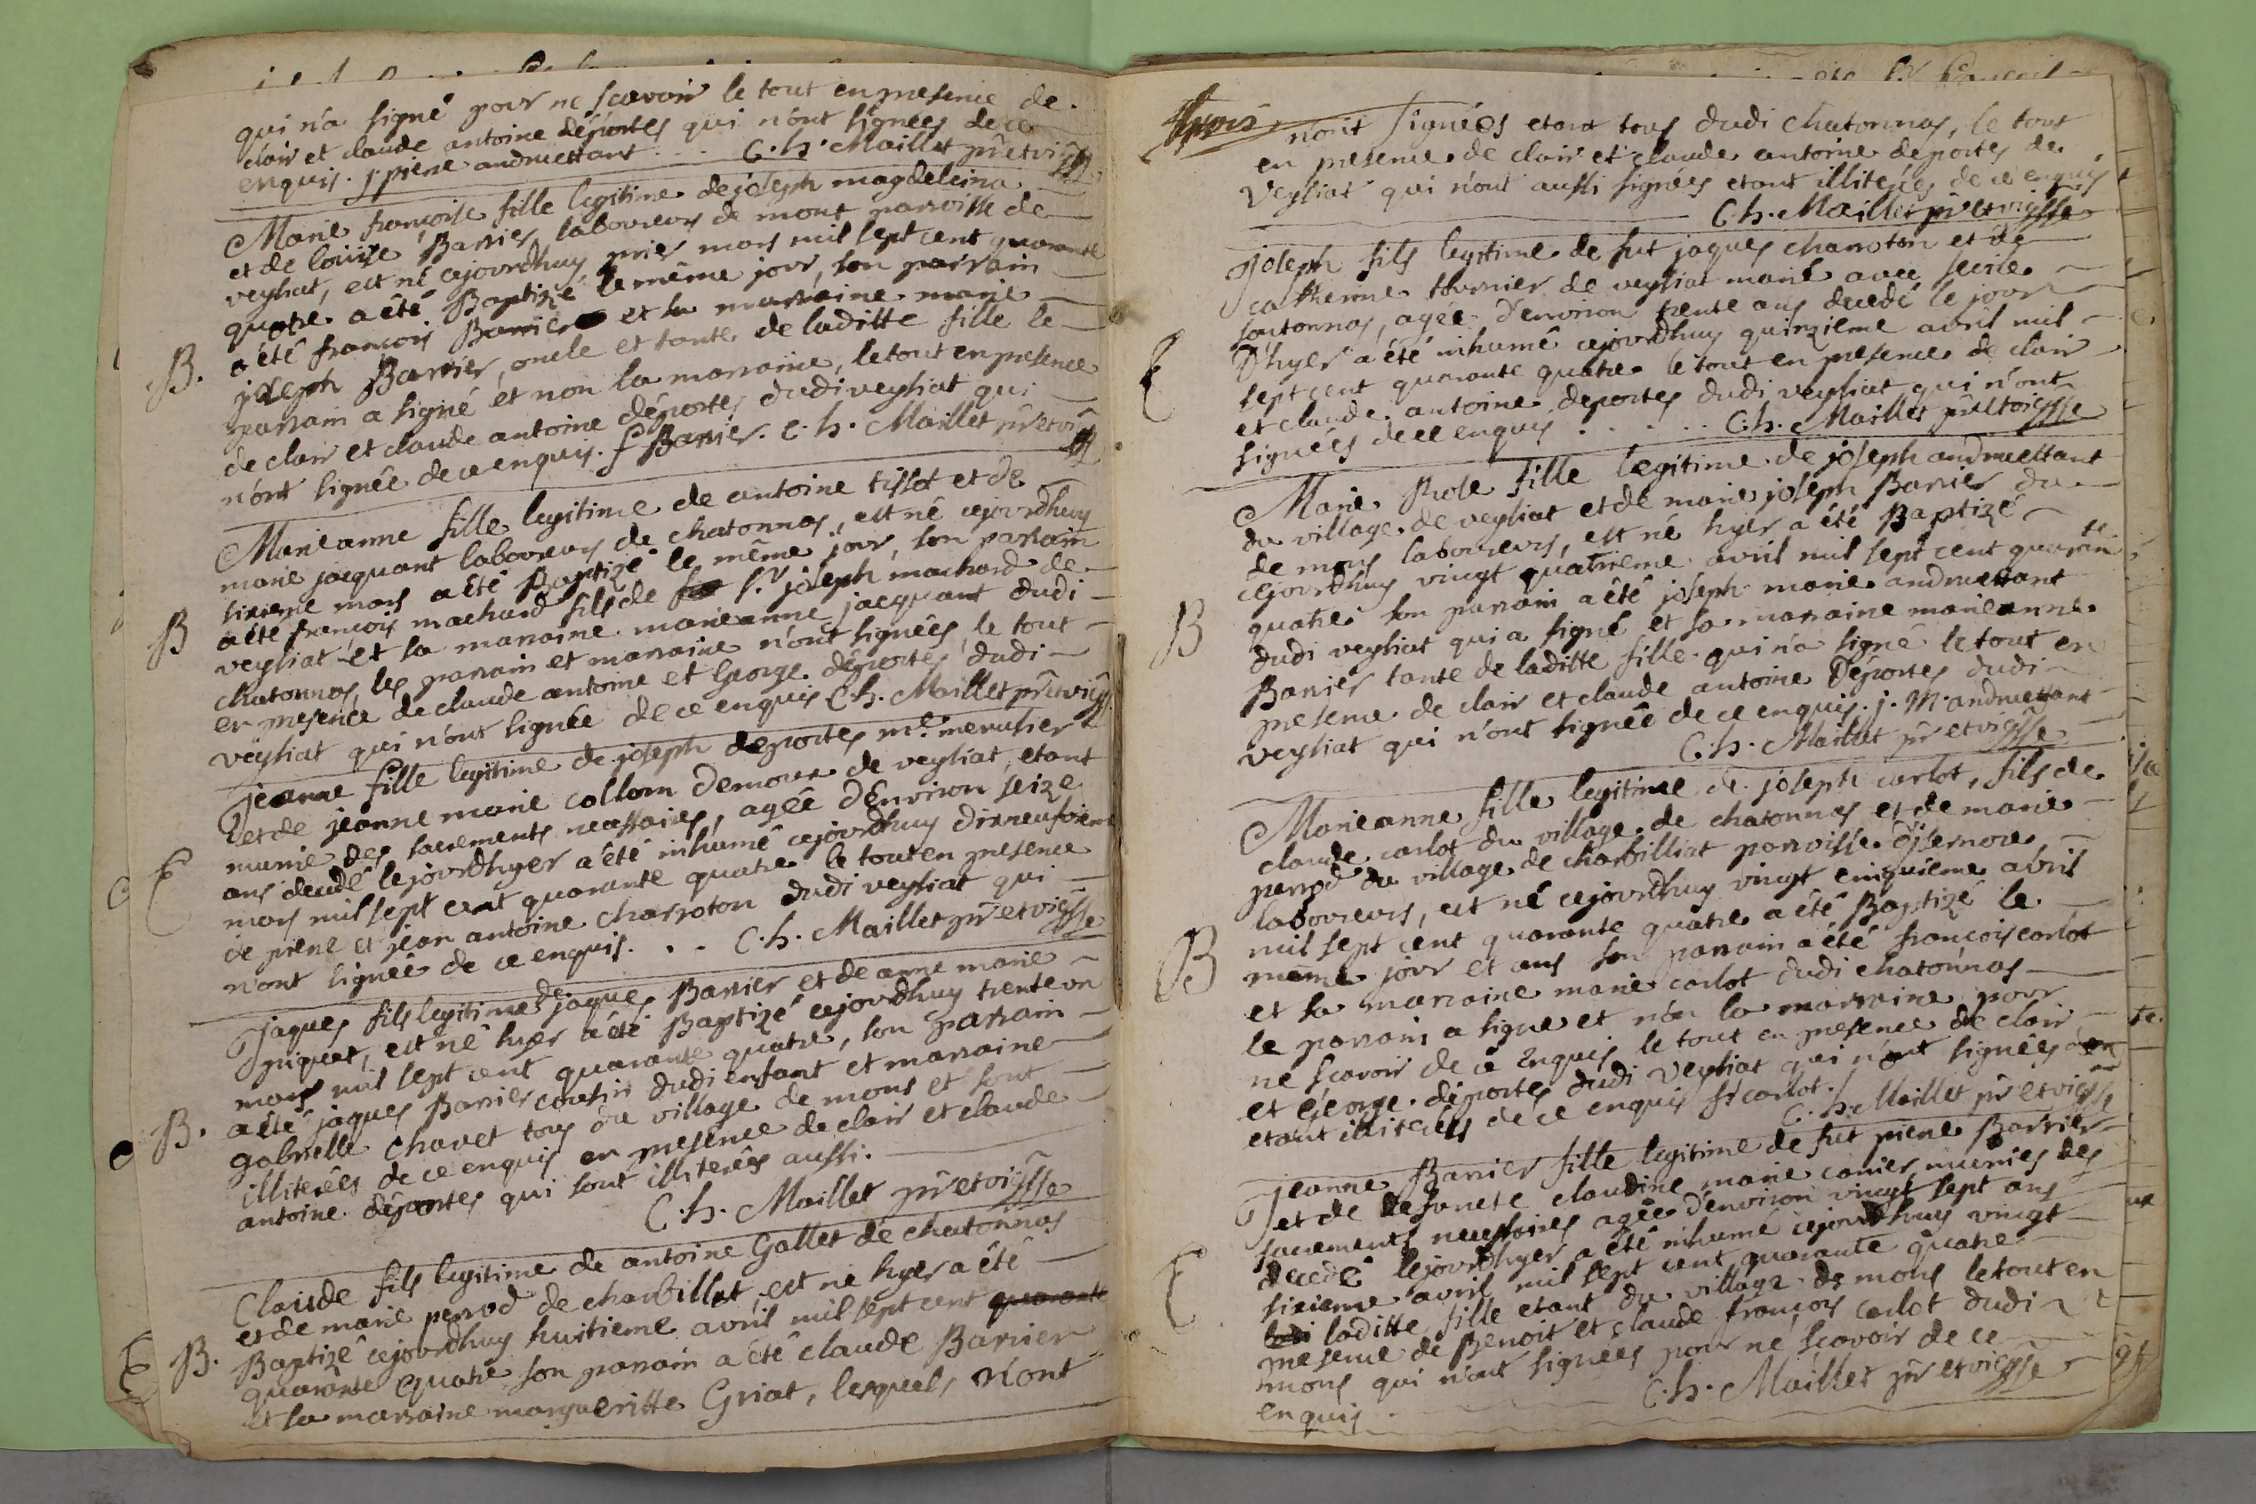 qui n'a signé pour ne scavoir le tout en presence de
clair et claude antoine déportes qui n'ont signées de ce
enquis. j. piere andruettant . . . C. h. Maillet prêt vic
Marie françoise fille legitime de joseph magdeleina
et de loüise Barrier laboureurs de mont parroisse de
veyliat, est né cejourdhuy prier mars mil sept cent quarante
quatre a été Baptizé le même jour, son parrain
B.
a été françois Barrier et sa marraine marie
joseph Barrier, oncle et tante de laditte fille le
parrain a signé et non la marraine, le tout en presence
de clair et claude antoine déportes dudi veyliat qui
n'ont signée de ce enquis. f Barrier. C. h. Maillet prêt vic
Marieanne fille legitime de antoine tissot et de
marie jacquant laboureurs de chatonnas, est né cejourdhuy
sixieme mars a été Baptizé le même jour, son parrain
B
a été françois machard fils de sr. joseph machard de
veyliat et sa marraine marieanne jacquant dudi
chatonnas, les parrain et marraine n'ont signées, le tout
en presence de claude antoine et George déportes dudi
veyliat qui n'ont signée de ce enquis C. h. Maillet prêt vic
jeanne fille legitime de joseph deportes me. menusier
et de jeanne marie collom Demoux de veyliat, etant
munie des sacrements necessaires, agée d'environ seize
E
ans decedé lejourdhyer a été inhumé cejourdhuy dixneufvieme
mars mil sept cent quarante quatre le tout en presence
de piere et jean antoine charroton dudi veyliat qui
n'ont signée de ce enquis. . . C. h. Maillet prêt et vicsse
jaques fils legitime de jaques Barrier et de anne marie
piquet, est né hyer a été Baptizé cejourdhuy trente un
mars mil sept cent quarante quatre, son parrain
B.
a été jaques Barrier cousin dudi enfant et marraine
gabrielle chavet tous du village de mons et sont
illiterées de ce enquis en presence de clair et claude
antoine déportes qui sont illiterées aussi.
C. h. Maillet prêt et vicsse
Claude fils legitime de antoine Gallet de chatonnas
et de marie perrod de charbillat, est né hyer a été
B.
Baptizé cejourdhuy huitieme avril mil sept cent quarante
quarante quatre son parrain a été claude Barrier
et sa marraine margueritte Griat, lesquels n'ont
trois
n'ont signées etant tous dudi chatonnas, le tout
en presence de clair et claude antoine deportes de
veyliat qui n'ont aussi signées etant illiterées de ce enquis
C. h. Maillet prêt vicsse
joseph fils legitime de fut jaques charroton et de
catherine tournier de veyliat marié avec
soutonnas, agée d'environ trente ans decedé le jour
E
D'hyer a été inhumé cejourdhuy quinzieme avril mil
sept cent quarante quatre le tout en presence de clair
et claude antoine deportes dudi veyliat qui n'ont
signées de ce enquis . . . . . C. h. Maillet prêt vicsse
Marie Rose fille legitime de joseph andruettant
du village de veyliat et de marie joseph Barrier du
de mons laboureurs, est né hyer a été Baptizé
cejourdhuy vingt quatrieme avril mil sept cent quaran te
B
quatre son parrain a été joseph marie andruettant
dudi veyliat qui a signé et sa marraine marieanne
Barrier tante de laditte fille qui n'a signé le tout en
presence de clair et claude antoine Déportes dudi
veyliat qui n'ont signée de ce enquis. j. M. andruettant
C. h. Maillet prêt et vicsse
Marieanne fille legitime de joseph carlot, fils de
claude carlot du village de chatonnas et de marie
perrod du village de charbilliat parroisse d'isernore
laboureurs, est né cejourdhuy vingt cinquieme avril
B
mil sept cent quarante quatre a été Baptizé le
meme jour et ans son parrain a été francois carlot
et sa marraine marie carlot dudi chatonnas
le parrain a signe et n'on la marraine pour
ne scavoir de ce Enquis le tout en presence de clair
et George déportes dudi veyliat qui n'ont signées
etant illiterées de ce enquis f: carlot.
C. h. Maillet prêt et vicsse
jeanne Barrier fille legitime de fut piere Barrier
et de defuncte claudine marie carrier munies des
sacements necessaires agée d'environ vingt sept ans
decedé lejourdhyer a été inhumé cejourdhuy vingt
E
sixieme avril mil sept cent quarante quatre
laditte fille etant du village de mons le tout en
presence de Benoit et claude françois carlot dudi
mons qui n'ont signees pour ne scavoir de ce
enquis . . . C. h. Maillet prêt et vicsse